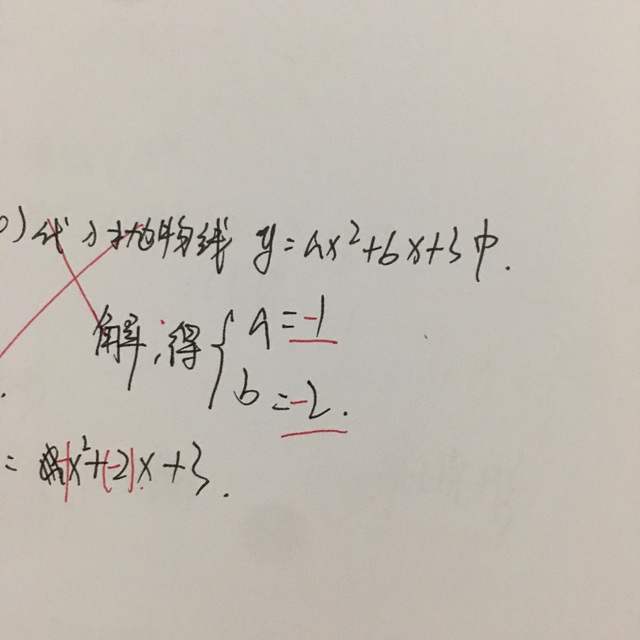 0)代入抛物线 y=ax²+bx+3中.
解得{a=-1
b=-2.
= x²+(-2)x+3.